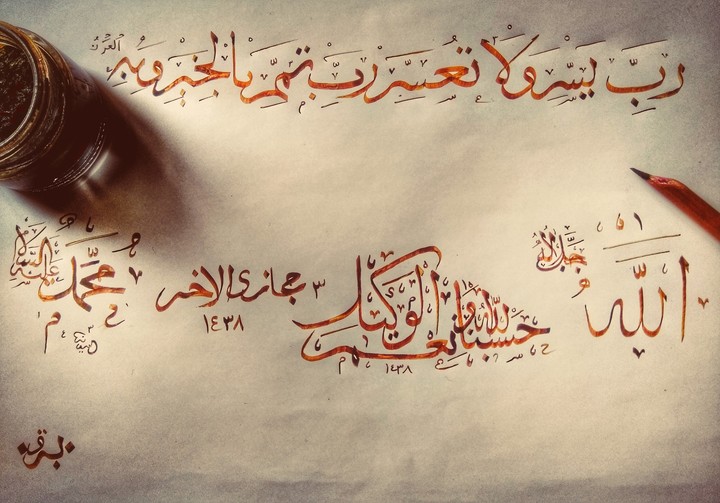 رب يسر ولا تعسر رب تمم بالخير وبه العون
الله جل جلاله
حسبنا الله ونعم الوكيل
١٤٣٨
٣ جمازى الاخر
١٤٣٨
محمد عليه السلام